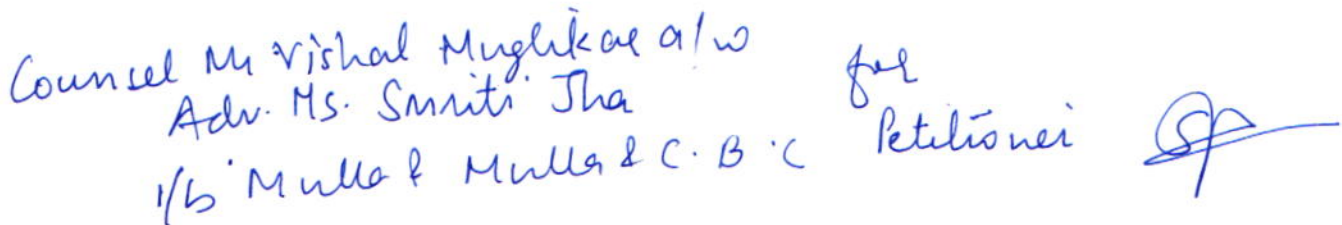 Counsel Mr Vishal Muglikar a/w
Adv. Ms. Smriti Jha
i/b Mulla & Mulla & C.B.C
for
Petitioner